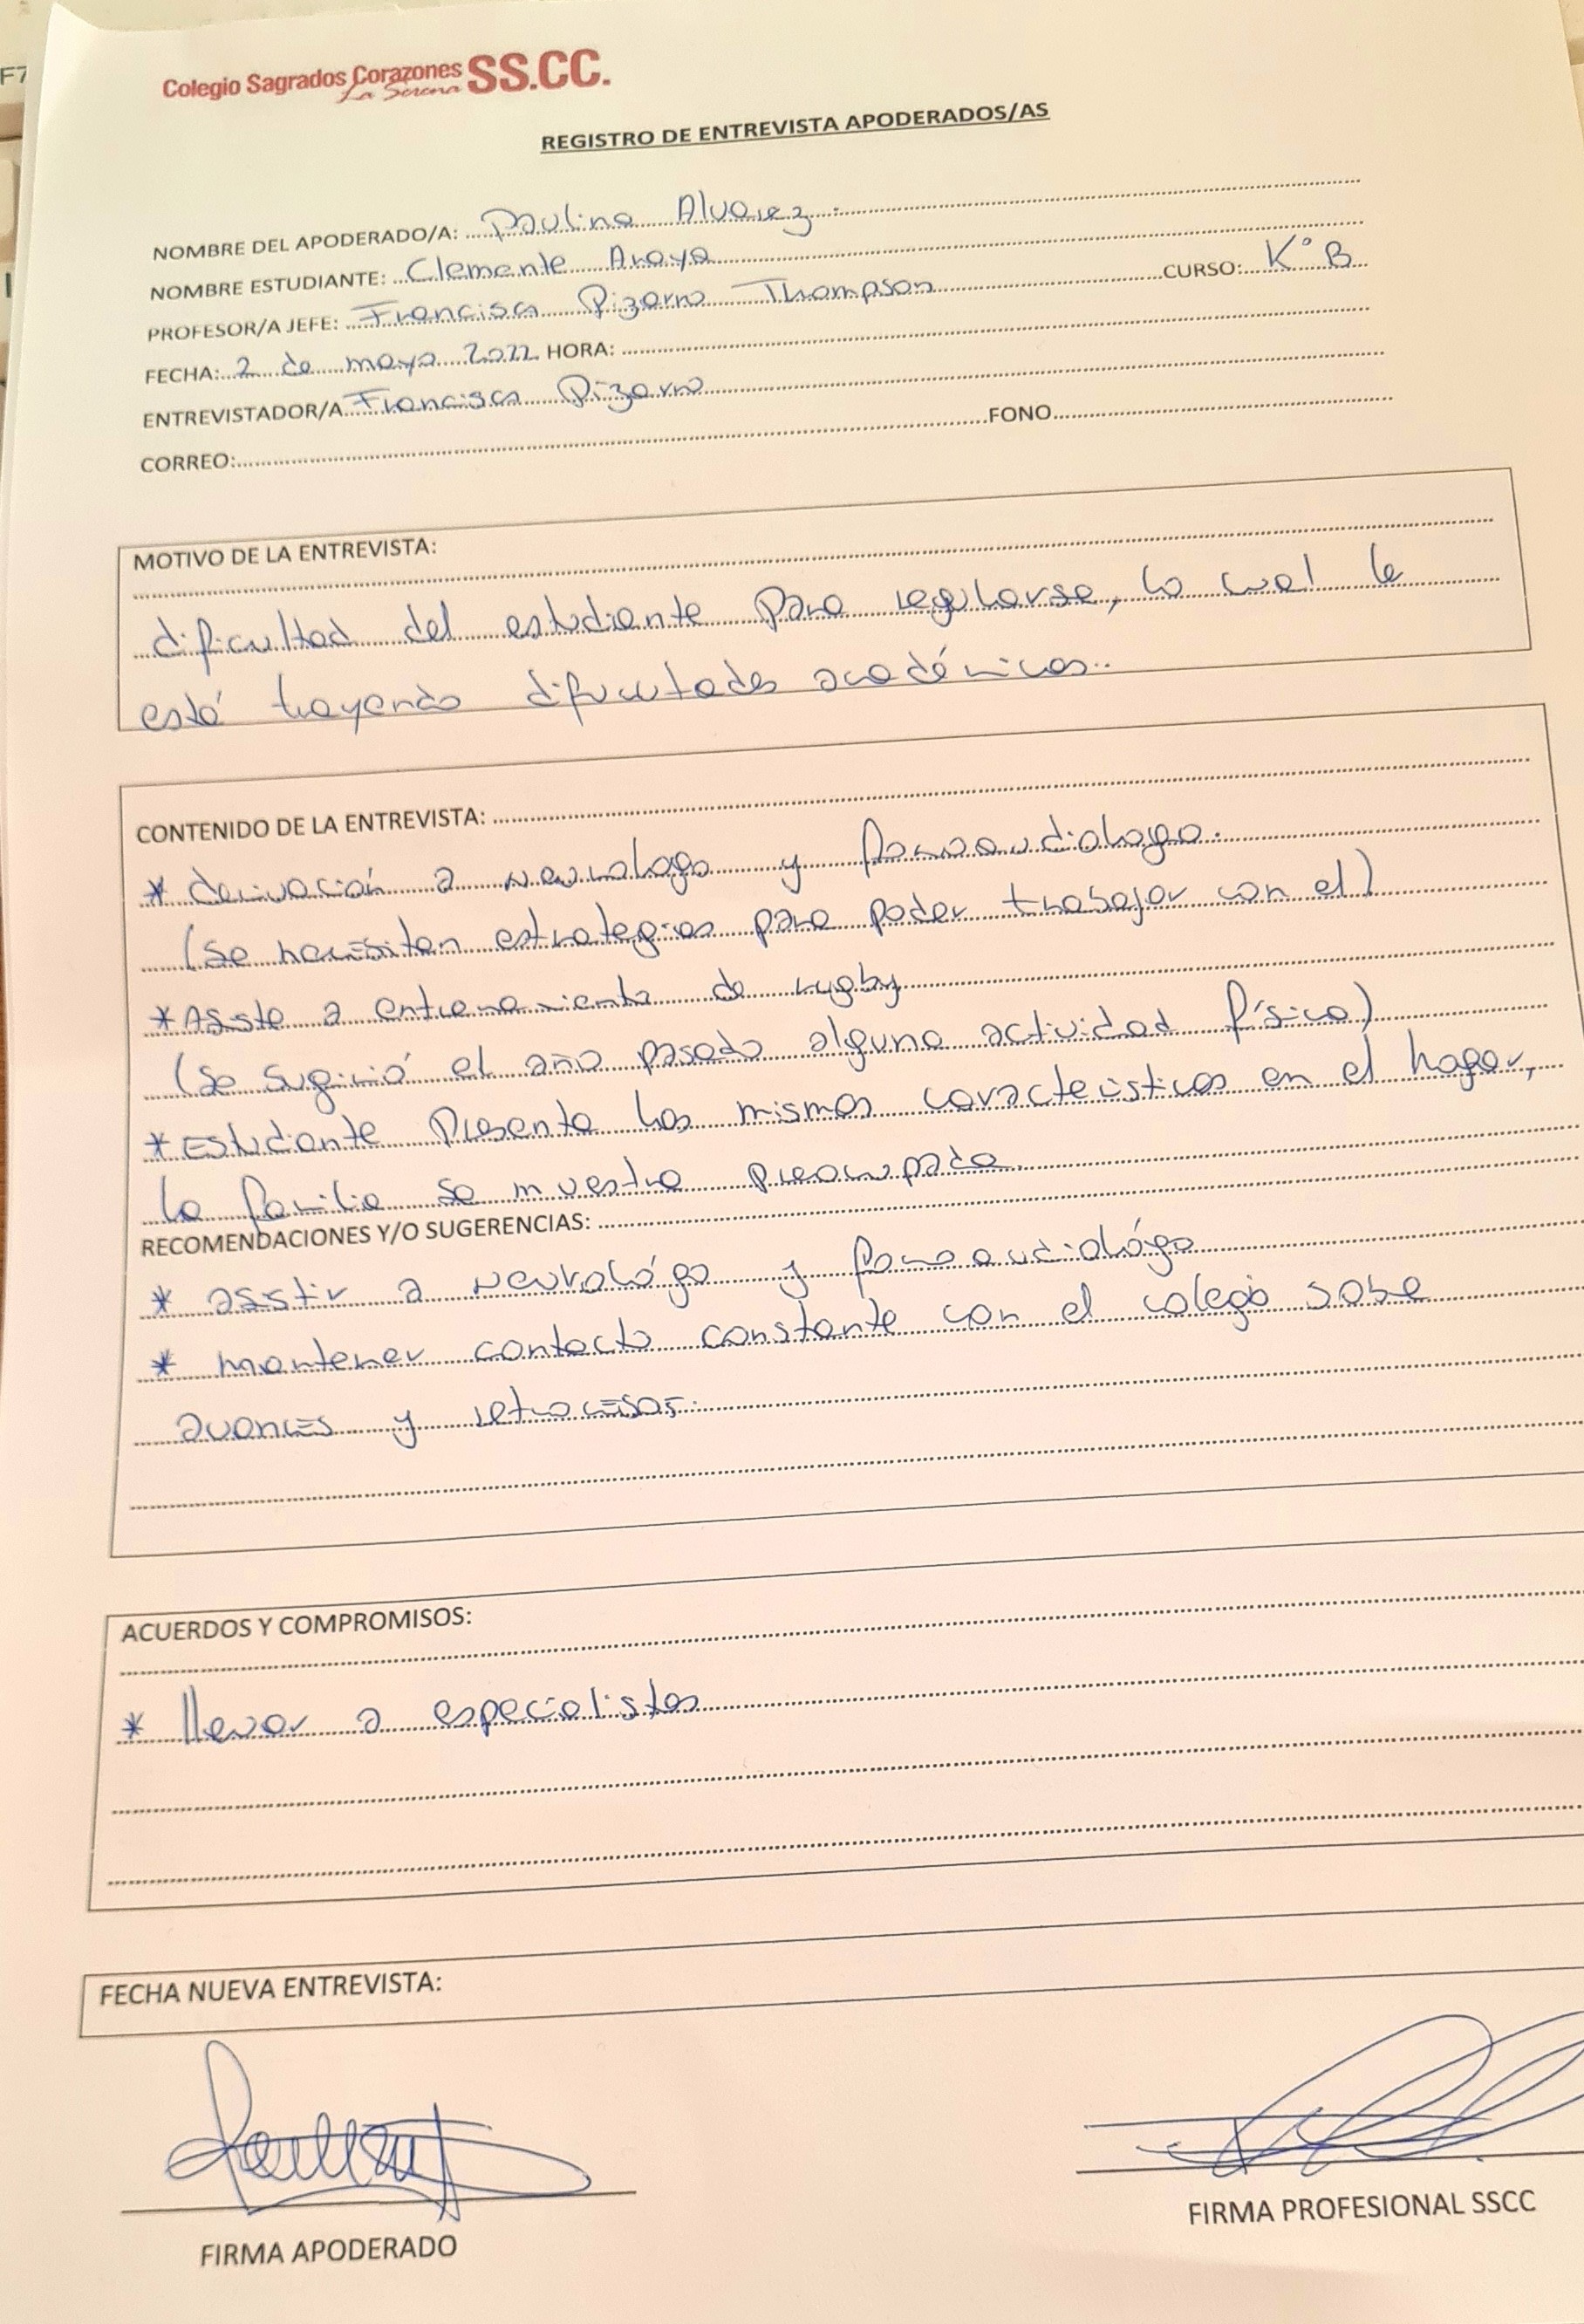 F7
Colegio Sagrados Corazones SS.CC.
La Serena
REGISTRO DE ENTREVISTA APODERADOS/AS
NOMBRE DEL APODERADO/A: Paulina Alvarez.
NOMBRE ESTUDIANTE: Clemente Araya
PROFESOR/A JEFE: Francisca Pizarro Thompson CURSO: K° B
FECHA: 2 de mayo 2022 HORA:
ENTREVISTADOR/A Francisca Pizarro
CORREO: FONO
MOTIVO DE LA ENTREVISTA:
dificultad del estudiante para regularse, lo cual le
está trayendo dificultades académicas.
CONTENIDO DE LA ENTREVISTA:
* derivación a neurologo y fonoaudiologo.
(se necesitan estrategias para poder trabajar con el)
* Asiste a entrenamiento de rugby
(se sugirió el año pasado alguna actividad física)
* Estudiante presenta las mismas características en el hogar,
la familia se muestra preocupada.
RECOMENDACIONES Y/O SUGERENCIAS:
* asistir a neurológo y fonoaudiológo
* mantener contacto constante con el colegio sobre
avances y retrocesos.
ACUERDOS Y COMPROMISOS:
* llevar a especialistas
FECHA NUEVA ENTREVISTA:
FIRMA APODERADO
FIRMA PROFESIONAL SSCC